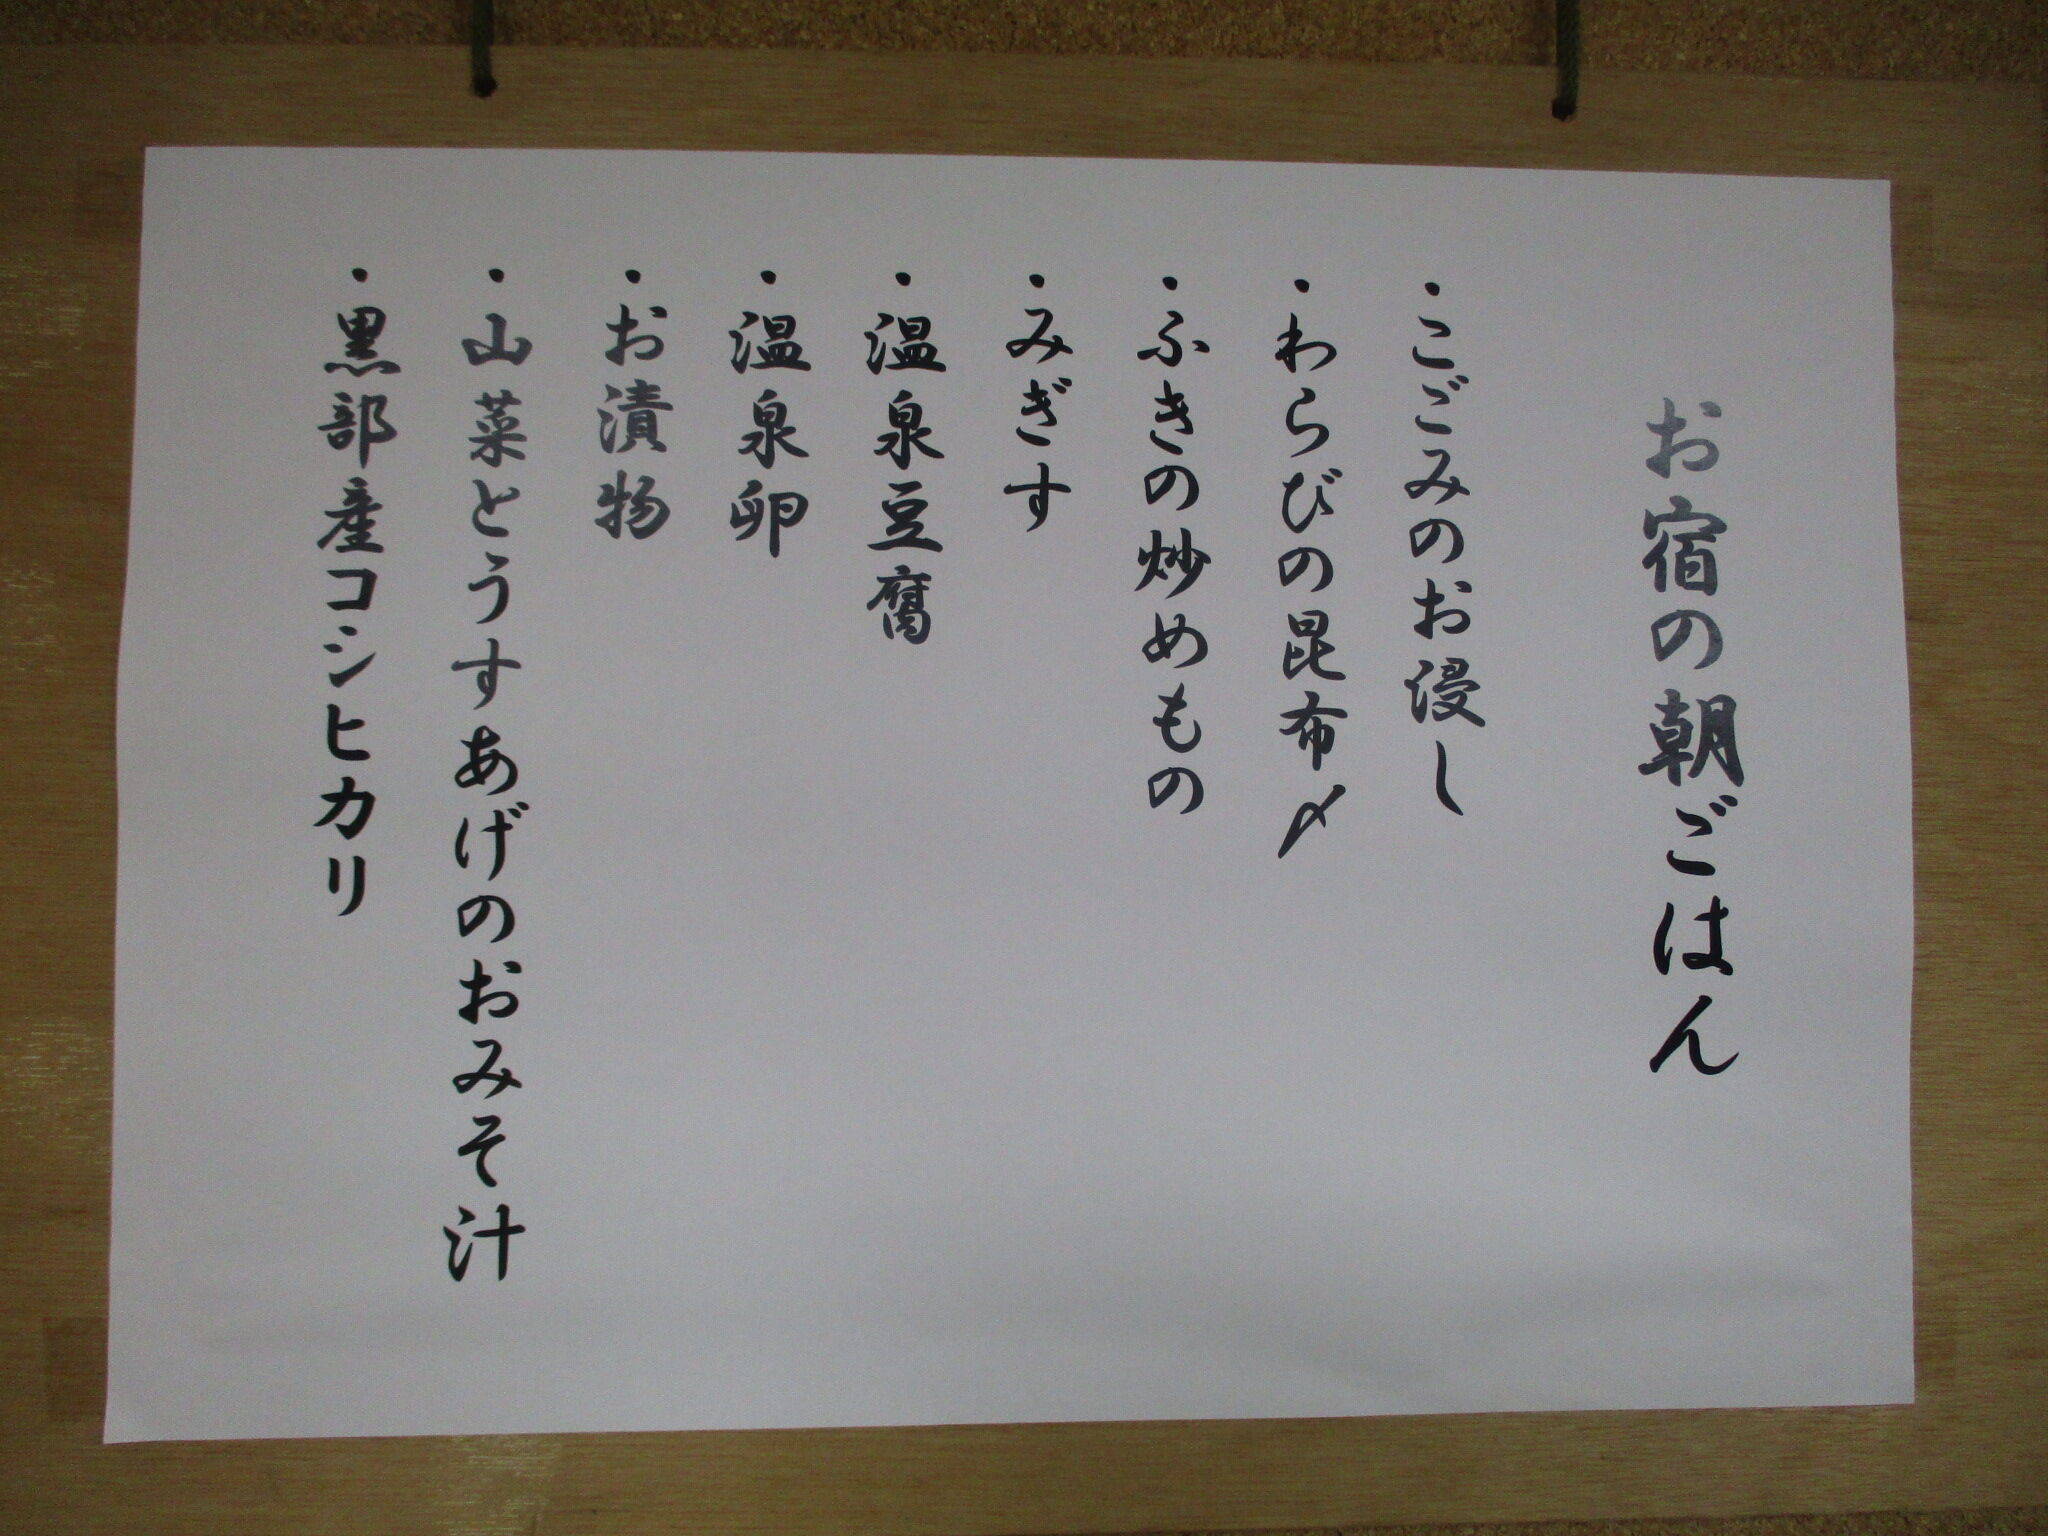 お宿の朝ごはん
・こごみのお浸し
・わらびの昆布〆
・ふきの炒めもの
・みぎす
・温泉豆腐
・温泉卵
・お漬物
・山菜とうすあげのおみそ汁
・黒部産コシヒカリ